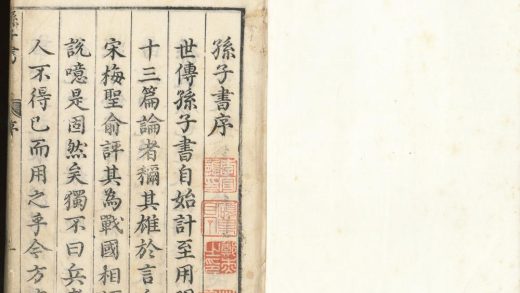 孫子書序
世傳孫子書自始計至用
十三篇論者穪其雄於言
宋梅聖俞評其為戰國相
說噫是固然矣獨不曰兵
人不得已而用之乎今方
孫子書
序